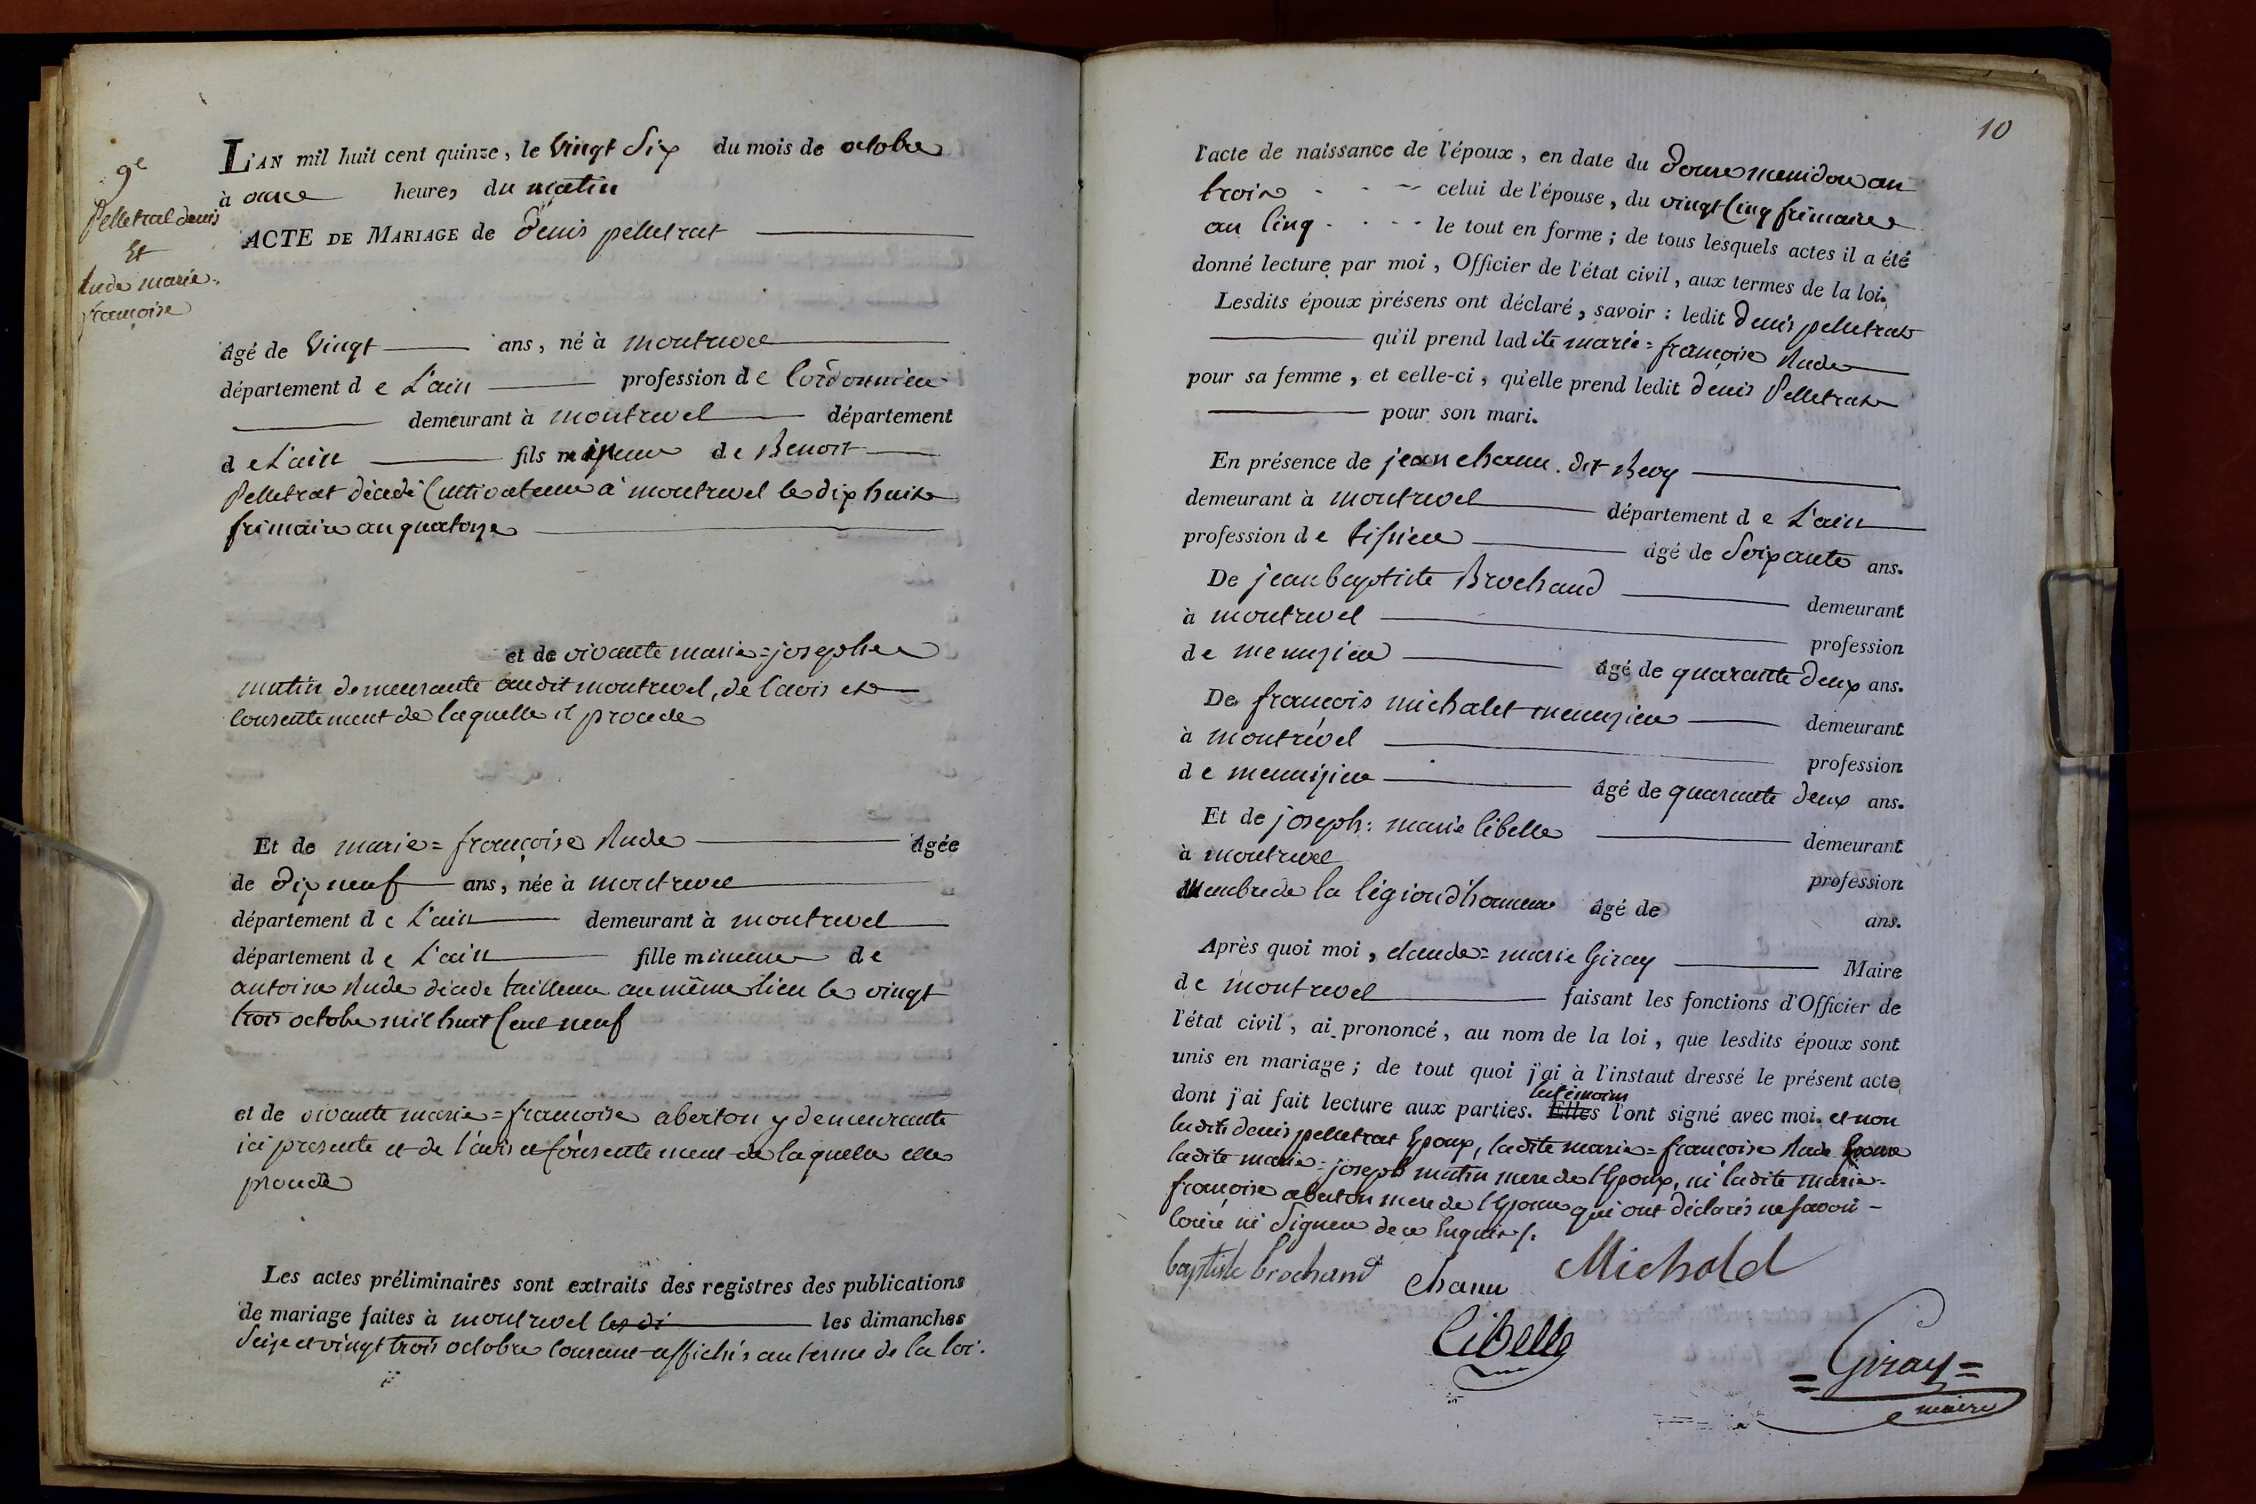 9e
Pelletrat denis
Et
Aude marie=
françoise
L'AN mil huit cent quinze, le vingt six du mois de octobre
à onze heures du matin
ACTE DE MARIAGE de denis pelletrat
âgé de vingt ans, né à montrevel
département de L'ain profession de Cordonnier
demeurant à montrevel département
de L'ain fils mineur de Benoit
Pelletrat décédé Cultivateur à montrevel le dix huit
frimaire an quatorze
et de vivante marie=josephe
mutin demeurante audit montrevel, de l'avis et
consentement de laquelle il procede
Et de marie=françoise Aude âgée
de dix neuf ans, née à montrevel
département de L'ain demeurant à montrevel
département de L'ain fille mineure de
antoine Aude décédé tailleur au même lieu le vingt
trois octobre mil huit Cent neuf
et de vivante marie=francoise aberton y demeurante
ici presente et de l'avis et Consentement de laquelle elle
procede
Les actes préliminaires sont extraits des registres des publications
de mariage faites à montrevel les di les dimanches
Seize et vingt trois octobre courant affichés au terme de la loi.
10
l'acte de naissance de l'époux, en date du douze messidor an
trois celui de l'épouse, du vingt Cinq frimaire
an Cinq le tout en forme; de tous lesquels actes il a été
donné lecture par moi, Officier de l'état civil, aux termes de la loi.
Lesdits époux présens ont déclaré, savoir: ledit denis pelletrat
qu'il prend ladite marie=françoise Aude
pour sa femme, et celle-ci, qu'elle prend ledit denis Pelletrat
pour son mari.
En présence de jean chanu. dit Bevy
demeurant à montrevel département de L'ain
profession de tissier âgé de Soixante ans.
De jean baptiste Brochand demeurant
à montrevel profession
de menuzier âgé de quarante deux ans.
De françois michalet menuzier demeurant
à montrevel profession
de menuizier âgé de quarante deux ans.
Et de joseph=marie libelle demeurant
à montrevel profession
Membre de la légion d'honneur âgé de ans.
Après quoi moi, claude=marie Giray Maire
de montrevel faisant les fonctions d'Officier de
l'état civil, ai prononcé, au nom de la loi, que lesdits époux sont
unis en mariage; de tout quoi j'ai à l'instaut dressé le présent acte
dont j'ai fait lecture aux parties. Elles les témoins l'ont signé avec moi. et non
ledit denis pelletrat Epoux, ladite marie=françoise Aude Epouse
ladite marie=joseph mutin mere de l'Epoux, ni ladite marie=
françoise aberton mere de l'Epouse qui ont déclarés ne savoir
écrire ni Signer de ce Enquis /.
baptiste brochand chanu Michold
Libelle
=Giray=
maire